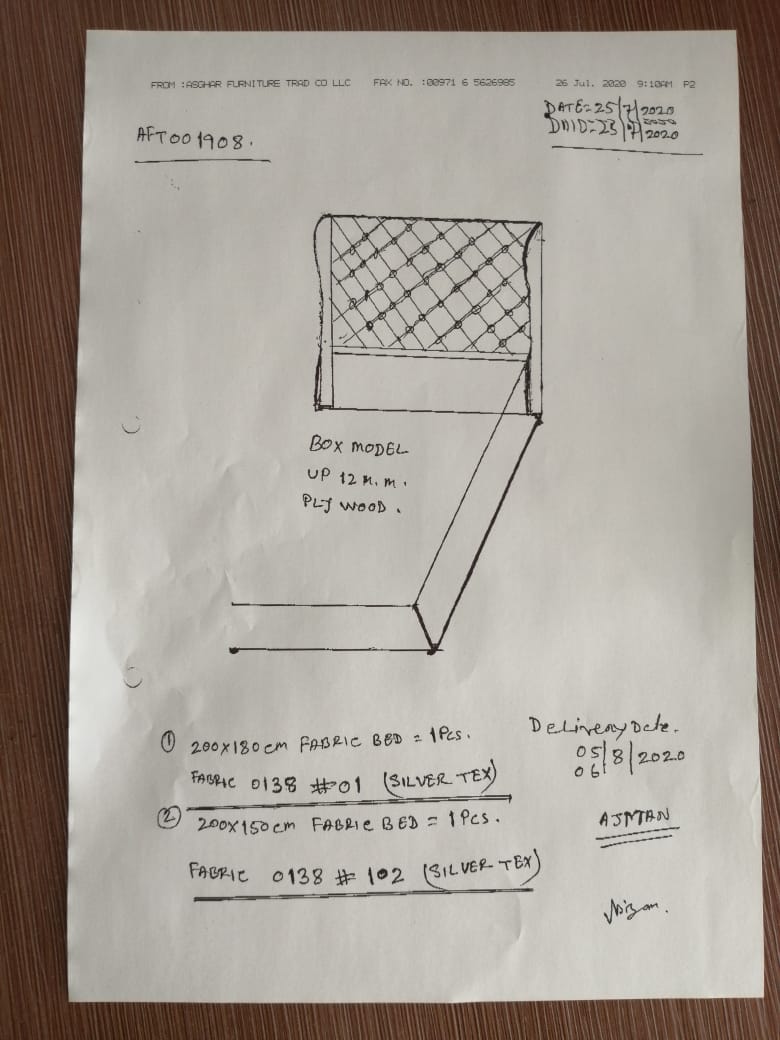 FROM :ASGHAR FURNITURE TRAD CO LLC FAX NO. :00971 6 5626985 26 Jul. 2020 9:10AM P2
DATE=25/7/2020
23/7/2020
AFT001908.
BOX MODEL
UP 12 M.M.
PLY WOOD.
① 200X180cm FABRIC BED = 1Pcs.
FABRIC 0138 #01 (SILVER TEX)
② 200X150cm FABRIC BED = 1Pcs.
FABRIC 0138 # 102 (SILVER TEX)
Delivery Date.
05/8/2020
06
AJMAN
Nizam.